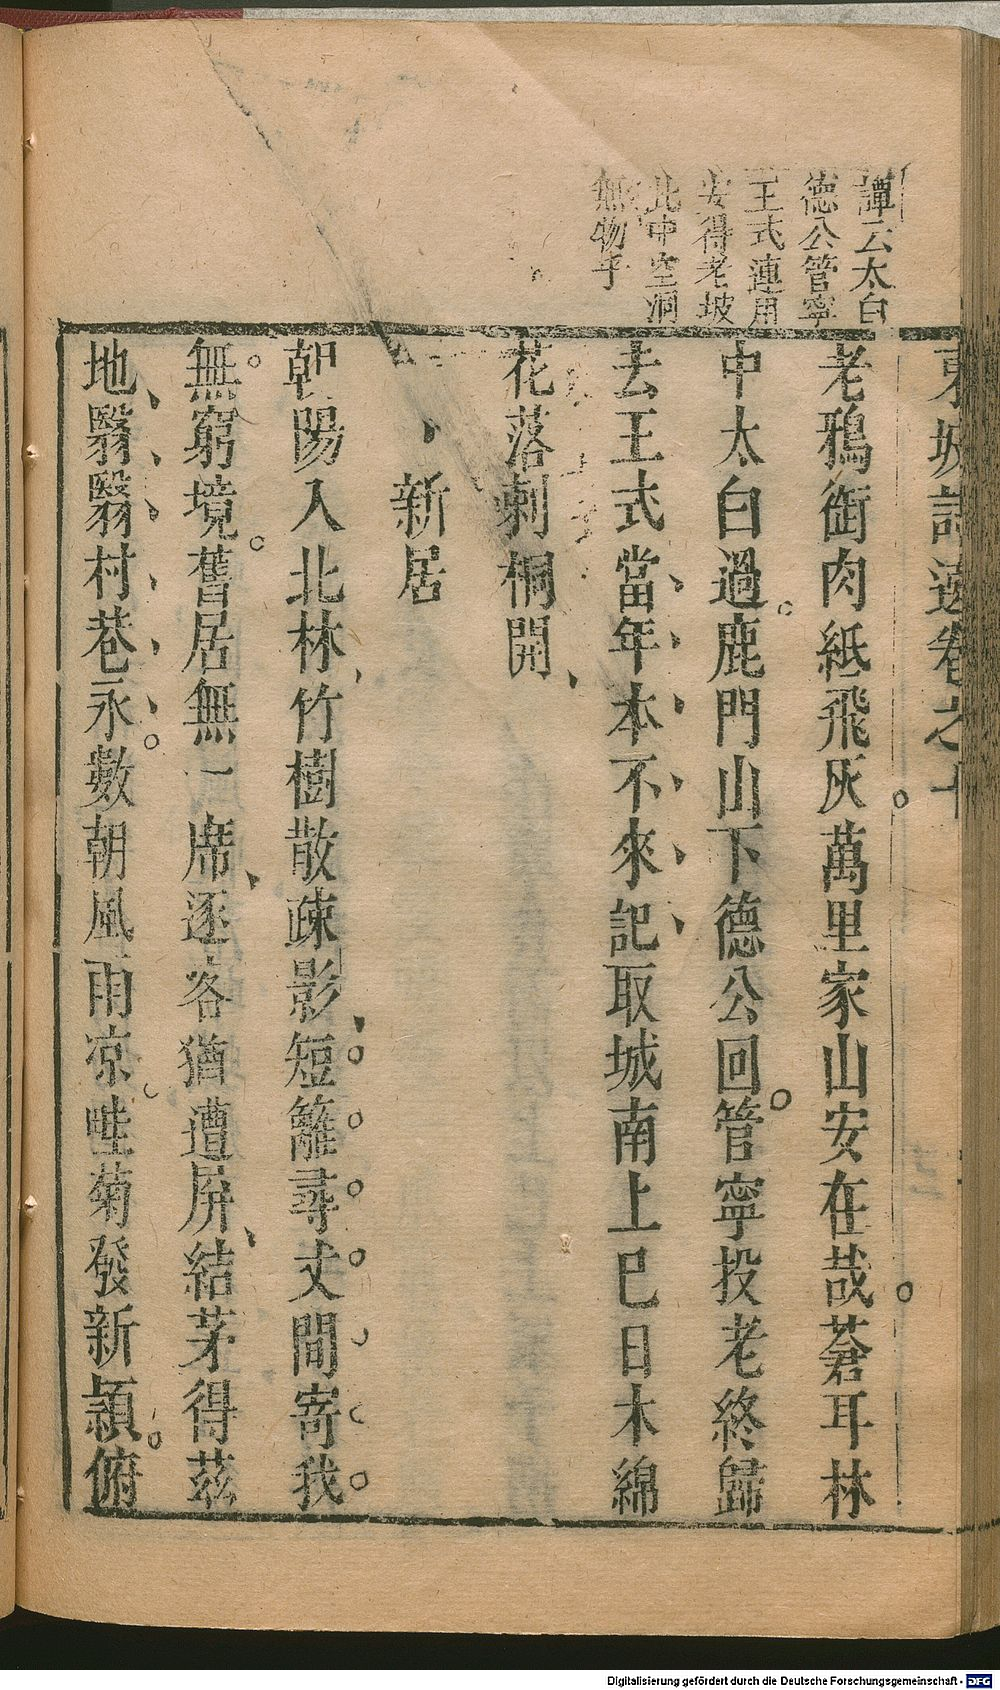 東坡詩選卷之十
譚云太白
德公管寧
王式連用
安得老坡
此中空洞
無物乎
老鴉銜肉紙飛灰萬里家山安在哉蒼耳林
中太白過鹿門山下德公回管寧投老終歸
去王式當年本不來記取城南上巳日木綿
花落刺桐開
新居
朝陽入北林竹樹散疎影短籬尋丈間寄我
無窮境舊居無一席逐客猶遭屏結茅得茲
地翳翳村巷永數朝風雨凉畦菊發新頴俯
Digitalisierung gefördert durch die Deutsche Forschungsgemeinschaft - DFG